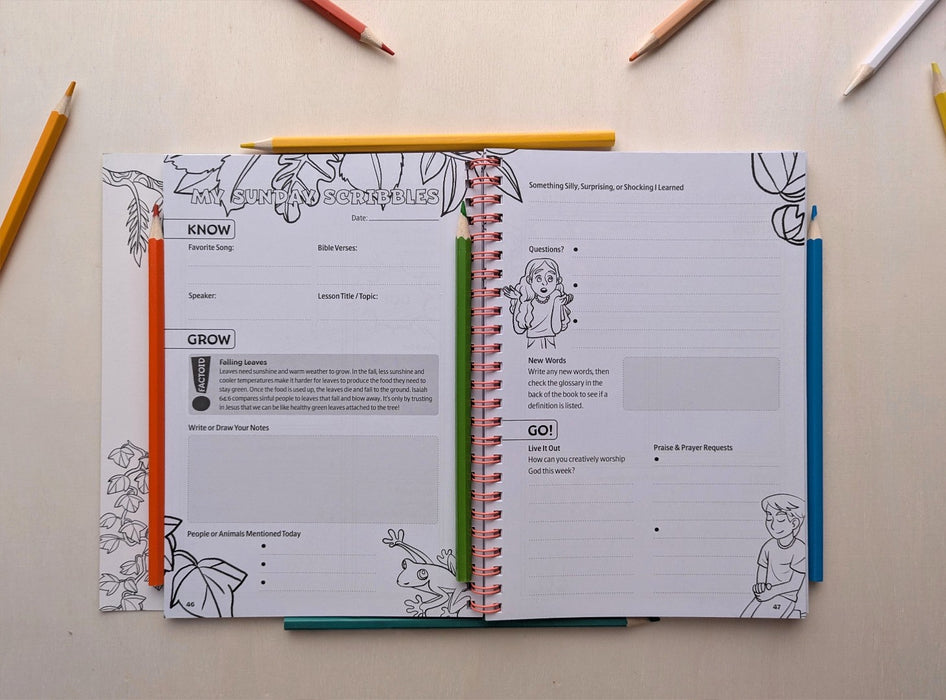 MY SUNDAY SCRIBBLES
Date:
KNOW
Favorite Song:
Bible Verses:
Speaker:
Lesson Title / Topic:
GROW
FACTOID
Falling Leaves
Leaves need sunshine and warm weather to grow. In the fall, less sunshine and
cooler temperatures make it harder for leaves to produce the food they need to
stay green. Once the food is used up, the leaves die and fall to the ground. Isaiah
64:6 compares sinful people to leaves that fall and blow away. It's only by trusting
in Jesus that we can be like healthy green leaves attached to the tree!
Write or Draw Your Notes
People or Animals Mentioned Today
46
Something Silly, Surprising, or Shocking I Learned
Questions?
New Words
Write any new words, then
check the glossary in the
back of the book to see if a
definition is listed.
GO!
Live It Out
How can you creatively worship
God this week?
Praise & Prayer Requests
47